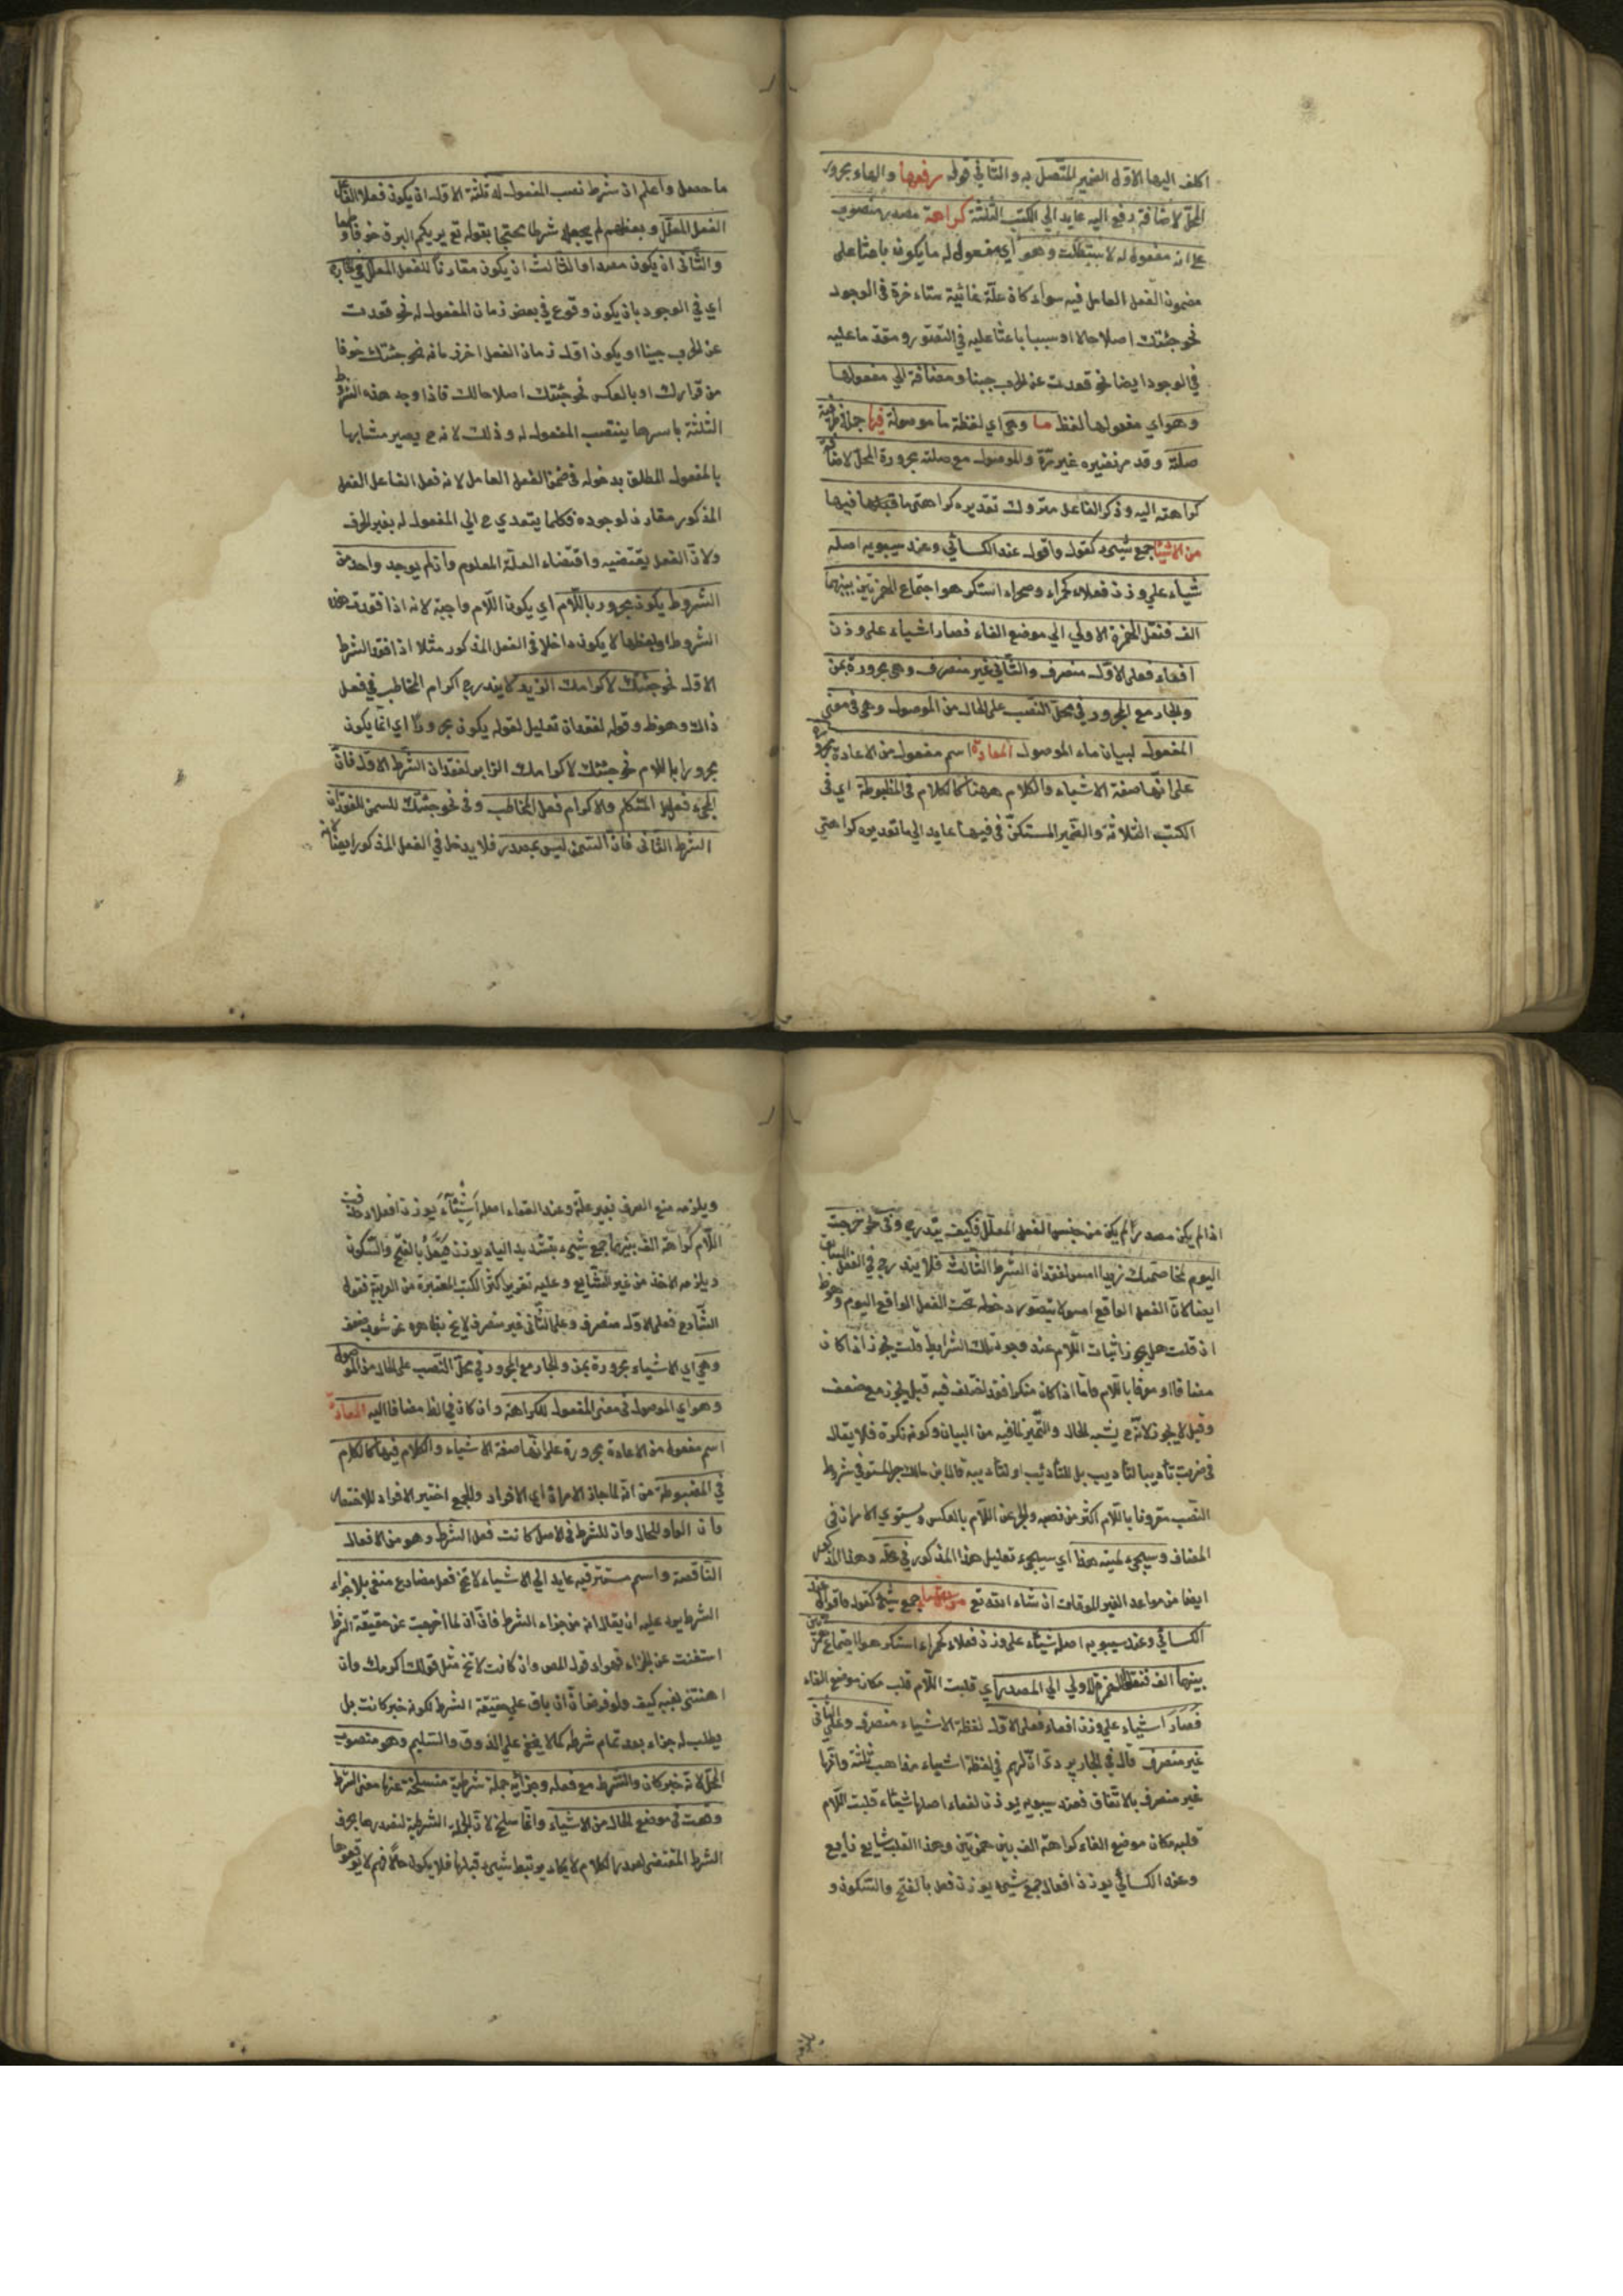 اكلف اليها الاولى الضمير المتصل به والثاني قوله رفعها والهاء مجرور
المحل لاضافة رفع اليه عايد الي الكتب الثلثة كراهة مصدر منصوب
علي انه مفعول له لاستبطلت وهو اي مفعول له ما يكون باعثا على
مضمون الفعل العامل فيه سواء كان علة غائية متاءخرة في الوجود
نحو جئتك اصلاحالا او سببا باعثا عليه في التصور ومتقدما عليه
في الوجود ايضا نحو قعدت عن الحرب جبنا ومضافة الي مفعولها
وهو اي مفعولها لفظ ما وهي اي لفظة ما موصولة فيها جملة ظرفية
صلته وقد مر تفسيره غير مرة والموصول مع صلته مجرورة المحل لاضافة
كراهته اليه وذكر الفاعل متروك تقديره كراهتي ما فيها
من الاشياء جمع شيىء كقول واقوال عند الكسائي وعند سيبويه اصله
شيأء علي وزن فعلاء كحمراء وصحراء استكرهوا اجتماع الهمزتين بينهما
الف فنقل الهمزة الاولي الي موضع الفاء فصار اشياء على وزن
افعاء فعلى الاول منصرف والثاني غير منصرف وهي مجرورة بمن
والجار مع المجرور في محل النصب على الحال من الموصول وهي في معنى
المفعول لبيان ماء الموصول المعادة اسم مفعول من الاعادة مجرورة
على انها صفة الاشياء والكلام ههنا كالكلام في المظبوطة اي في
الكتب الثلاثة والضمير المستكن في فيها عايد الي ما تقديره كراهتي
ما حصل واعلم ان شرط نصب المفعول له ثلثة الاول ان يكون فعلا لفاعل
الفعل المعلل وبعظهم لم يجعله شرطا محتجا بقوله تع يريكم البرق خوفا وطمعا
والثاني ان يكون مصدرا والثالث ان يكون مقارنا للفعل المعلل في
اي في الوجود بان يكون وقوع في بعض زمان المفعول له نحو قعدت
عن الحرب جبنا او يكون اول زمان الفعل اخر زمانه نحو جئتك خوفا
من فرارك او بالعكس نحو جئتك اصلاحا لك فاذا وجد هذه الشروط
الثلثة باسرها ينتصب المفعول له وذلك لانه ح يصير مشابها
بالمفعول المطلق بدخوله في ضمن الفعل العامل لانه فعل الفاعل الفعل
المذكور مقارن لوجوده فكما يتعدي ح الي المفعول له بغير الحرف
ولان الفعل يقتضيه واقتضاء العلة المعلوم وان لم يوجد واحد من
الشروط يكون مجرور باللام اي يكون اللام واجبة لانه اذا فقدت هذه
الشروط او بعظها لا يكون داخلا في الفعل المذكور مثلا اذا فقد الشرط
الاول نحو جئتك لاكرامك الزيد لا يندرج اكرام المخاطب في فعل
ذاك وهو ظ وقوله لفقدان تعليل لقوله يكون مجرورا اي انما يكون
مجرورا باللام نحو جئتك لاكرامك الزاير لفقدان الشرط الاول فان
المجىء فعل المتكلم والاكرام فعل المخاطب وفي نحو جئتك للسمن لفقدان
الشرط الثاني فان السمن ليس بمصدر فلا يدخل في الفعل المذكور ايضا لانه
اذا لم يكن مصدرا لم يكن من جنس الفعل المعلل فكيف يندرج وفي نحو خرجت
اليوم لمخاصمتك زيدا امس لفقدان الشرط الثالث فلا يندرج في الفعل
ايضا لان الفعل الواقع امس لا يتصور دخوله تحت الفعل الواقع اليوم وهو ظ
ان قلت هل يجوز اثبات اللام عند وجود تلك الشرايط قلت يجوز اذا كان
مضافا او معرفا باللام واما اذا كان منكرا فقد اختلف فيه قيل يجوز مع ضعف
وقيل لا يجوز لانه ح يشبه الحال والتميز لما فيه من البيان وكونه نكرة فلا يقال
في ضربت تأديبا لتأديب بل للتأديب او لتأديبه قال ابن مالك جر المستوفي شروط
النصب مقرونا باللام اكثر من نصبه والمجرد عن اللام بالعكس ويستوي الامران في
المضاف وسيجيء لميته هذا اي سيجيء تعليل هذا المذكور في محله وهذا المذكور
ايضا من مواعد الغير الموفات ان شاء الله تع جمع شيىء كقول واقوال عند
الكسائي وعند سيبويه اصله شيئاء على وزن فعلاء كحمراء استكرهوا اجتماع همزتين
بينهما الف فنقل الهمزة الاولي الي المصدر اي قلبت اللام قلب مكان موضع الفاء
فصار اشياء علي وزن افعاء فعلى الاول لفظة الاشياء منصرف وعلى الثاني
غير منصرف قال في الجاربردى ان لهم في لفظة اشياء مذاهب ثلثة وانها
غير منصرف بالاتفاق فعند سيبويه بوزن لفعاء اصلها شيئاء قلبت اللام
قلبه مكان موضع الفاء كراهة الف بين همزتين وهذا القلب شايع ذايع
وعند الكسائي بوزن افعال جمع شيىء بوزن فعل بالفتح والسكون و
ويلزمه منع الصرف بغير علة وعند الفراء اصله اشيئاء بوزن افعلاء حذفت
اللام كراهة الف بينهما جمع شيىء بتشديد الياء بوزن فيعل بالفتح والسكون
ويلزمه الاخذ من غير الشايع وعليه تقرير اكثر الكتب المعتبرة من العربية فقول
الشارح فعلى الاول منصرف وعلى الثاني غير منصرف لا يخ بظاهره عن شوب ضعف
وهي اي الاشياء مجرورة بمن والجار مع المجرور في محل النصب على الحال من الموصول
وهو اي الموصول في معنى المفعول للكراهة وان كان في الظ مضافا اليه المعادة
اسم مفعول من الاعادة مجرورة على انها صفة الاشياء والكلام فيها كالكلام
في المضبوطة من انه لما جاز الامران اي الافراد والجمع اختير الافراد للاختصار
وان الواو للحال وان للشرط في الاصل كانت فعل الشرط وهو من الافعال
الناقصة واسم مستتر فيه عايد الي الاشياء لا تخ فعل مضارع منفي بلا جزاء
الشرط يرد عليه ان يقال انه من جزاء الشرط فان ان لما اخرجت عن حقيقة الشرط
استغنت عن الجزاء فهو اد قول المص وان كانت لا تخ مثل قولك اكرمك وان
اهنتني فيه كيف ولو فرضنا ان باق علي حقيقة الشرط لكونه خبر كانت بل
يطلب له جزاء بعد تمام شرطه كما لا يخفى علي الذوق والتسليم وهو منصوب
المحل لانه خبر كان والشرط مع فعله وجزائه جملة شرطية منسلخة عنها معنى الشرط
وقعت في موضع الحال من الاشياء وانما سلخ لان الجملة الشرطية لتصدرها بحرف
الشرط المقتضى لصدر الكلام لا يكاد يرتبط بشيىء قبلها فلا يكون حالا